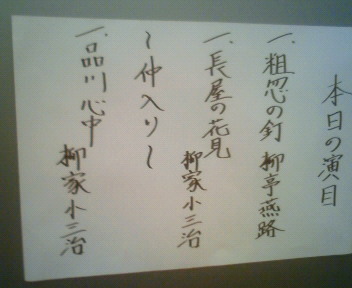 本日の演目
一、粗忽の釘 柳亭燕路
一、長屋の花見 柳家小三治
〜仲入り〜
一、品川心中 柳家小三治